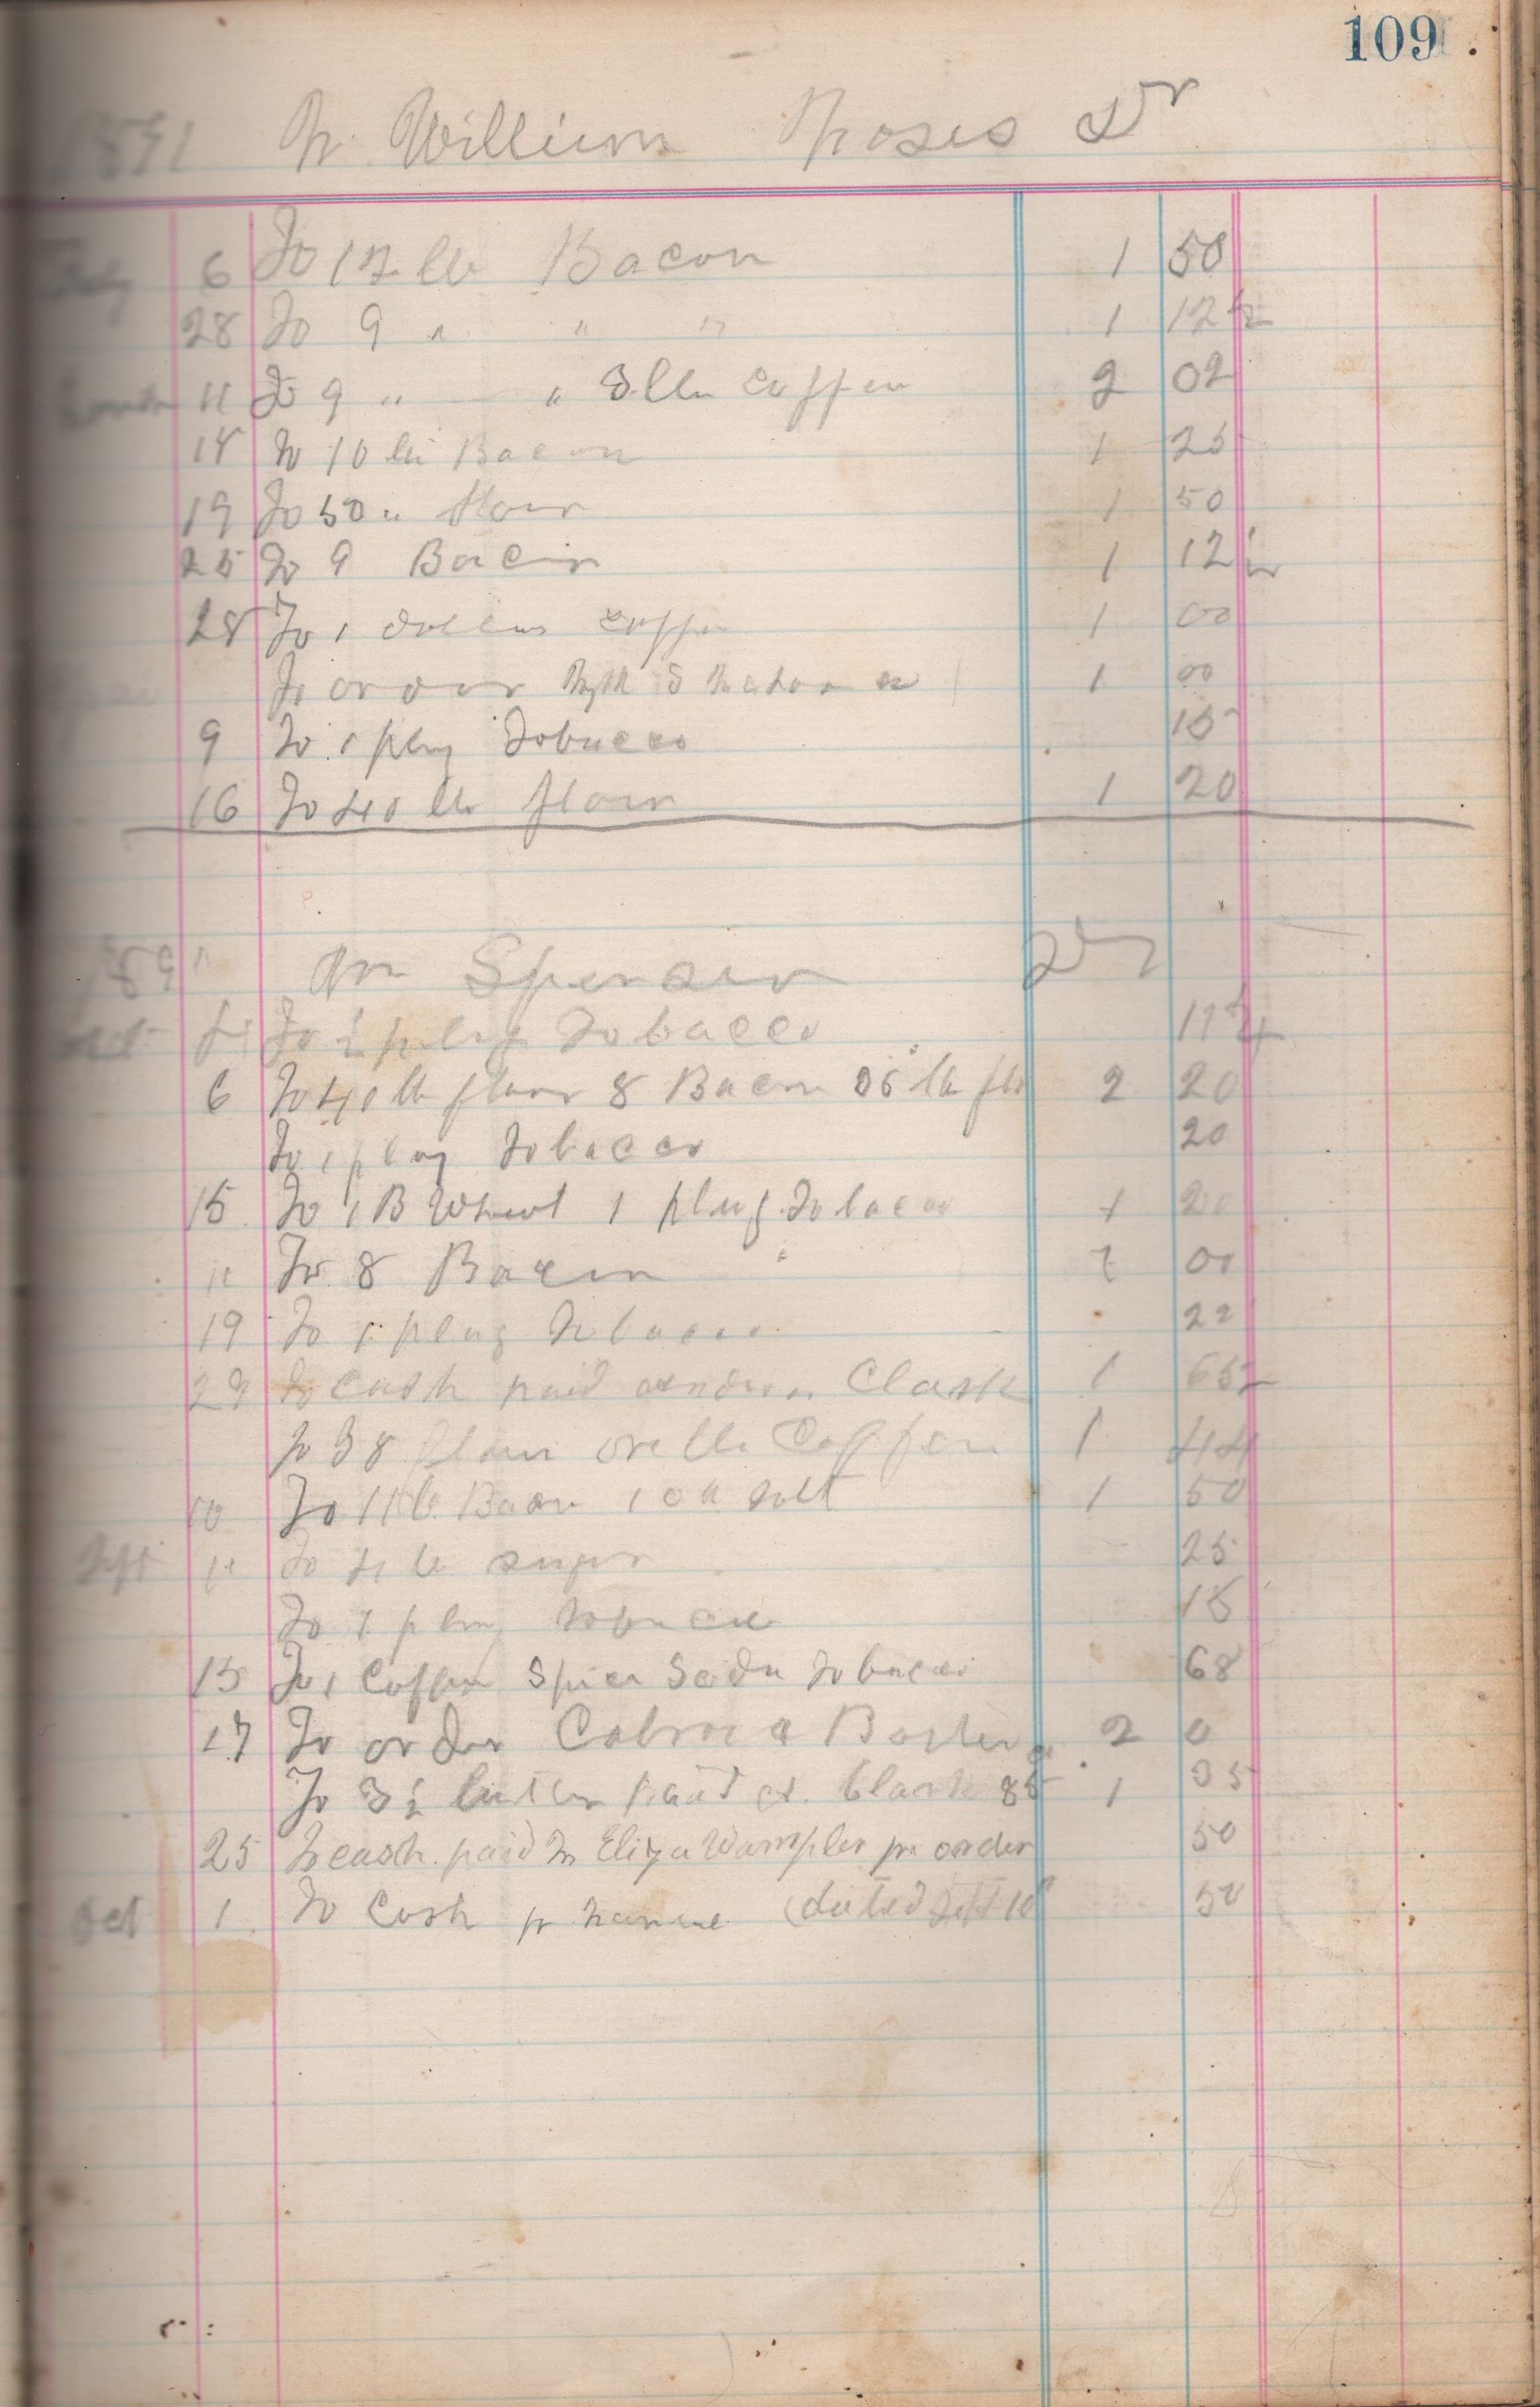 109
1891 M William Moses Dr
6 To 12 lb Bacon 1 50
28 To 9 " " " 1 12½
11 To 9 " " 3 lb Coffee 2 02
14 To 10 lb Bacon 1 25
19 To 50 " flour 1 50
25 To 9 Bacon 1 12½
28 To 1 dollar coffee 1 00
To order 1 00
9 To 1 plug Tobacco 15
16 To 40 lb flour 1 20
1891 Mr Spenser Dr
To ½ plug Tobacco
6 To 40 lb flour 8 Bacon 35 lb flr 2 20
To 1 plug Tobacco 20
15 To 1 B Wheat 1 plug Tobacco 1 20
11 To 8 Bacon 1 00
19 To 1 plug Tobacco 22
To cash paid Clark 1 65
To 38 flour one lb Coffee 1 44
10 To 11 lb Bacon 10 " salt 1 50
Sept 11 To 4 lb sugar 25
To 1 plug tobacco 15
15 To 1 Coffee Spice Soda Tobacco 68
17 To order 2 0
To 3½ butter paid Clark 85 1 35
25 To cash paid to Eliza Wampler pr order 50
Oct 1 To Cash pr (dated Sept 10 50